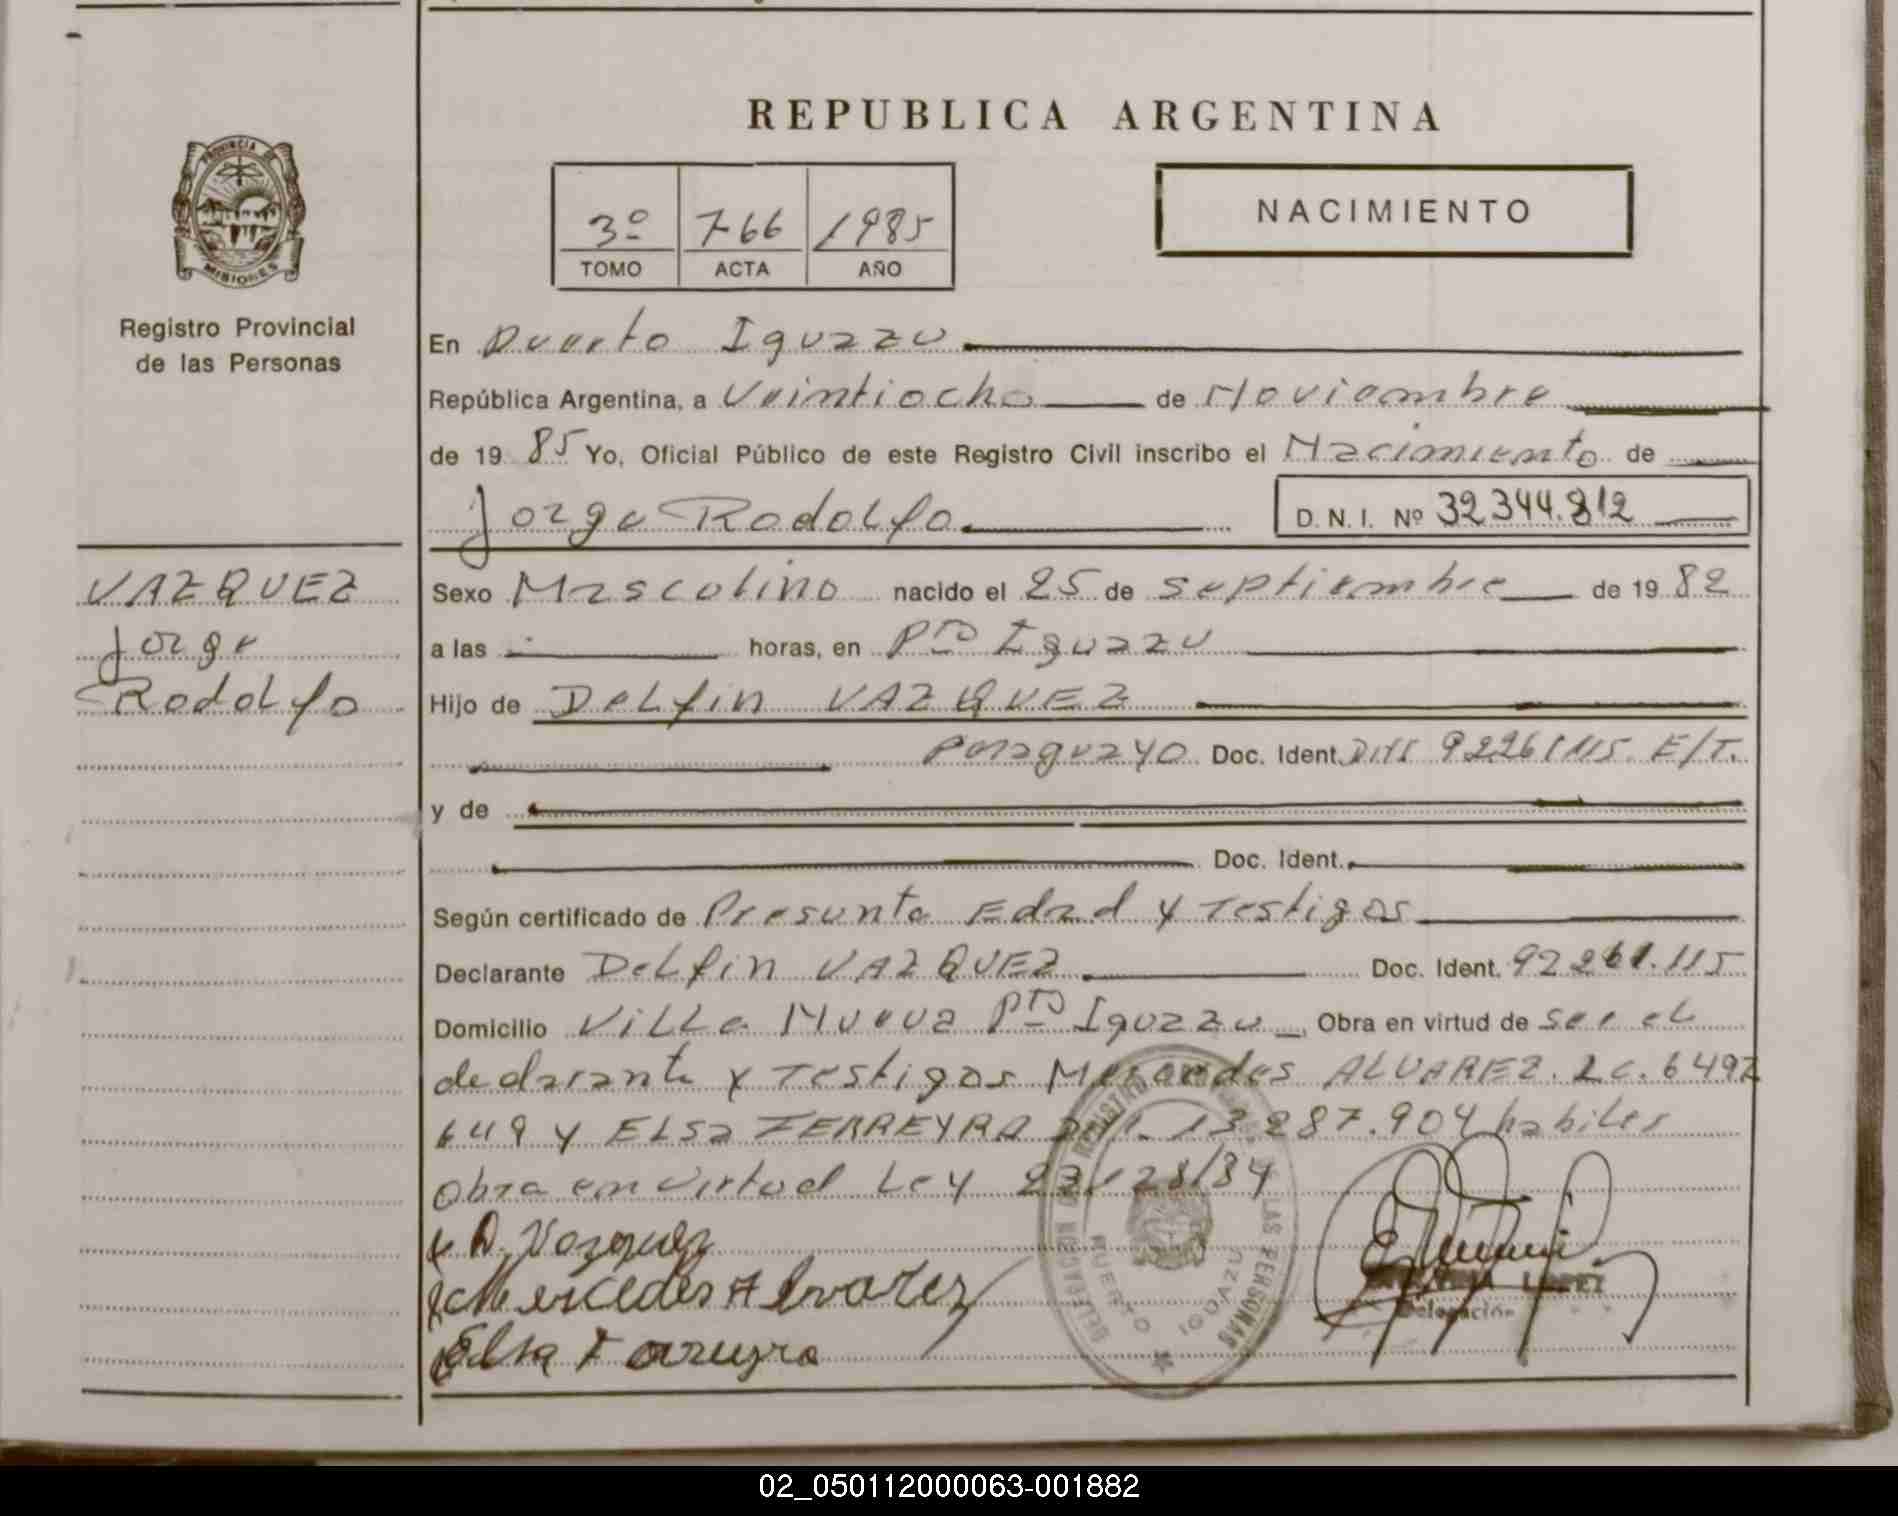 REPUBLICA ARGENTINA
PROVINCIA DE
MISIONES
Registro Provincial
de las Personas
3º 766 1985
TOMO ACTA AÑO
NACIMIENTO
En Puerto Iguazu
República Argentina, a Veintiocho de Noviembre
de 19 85 Yo, Oficial Público de este Registro Civil inscribo el Nacimiento de
Jorge Rodolfo D. N. I. Nº 32344.812
VAZQUEZ
Jorge
Rodolfo
Sexo Masculino nacido el 25 de septiembre de 19 82
a las horas, en Pto Iguazu
Hijo de Delfin VAZQUEZ
Paraguayo Doc. Ident. DNI 92261115 E/T.
y de
Doc. Ident.
Según certificado de Presunta Edad y Testigos
Declarante Delfin VAZQUEZ Doc. Ident. 92261.115
Domicilio Villa Nueva Pto Iguazu Obra en virtud de ser el
declarante y Testigos Mercedes ALVAREZ. LC. 6492
649 y ELSa FERREYRA DNI. 13287.904 habiles
Obra en virtud Ley 23128/84
D. Vazquez
Mercedes Alvarez
Elsa Ferreyra
DELEGACION DEL REGISTRO DE LAS PERSONAS
PUERTO IGUAZU
LOPEZ
Delegación
02_050112000063-001882